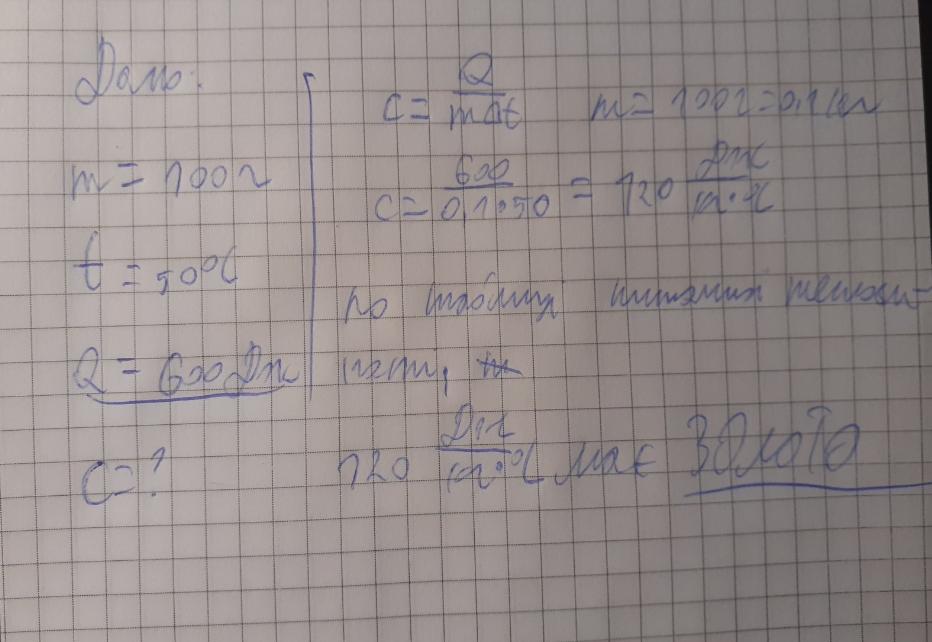 Дано:
m = 100 г
t = 50°C
Q = 600 Дж
C = ?
C = Q / mΔt   m = 100 г = 0,1 кг
C = 600 / 0,1·50 = 120 Дж / кг·°C
по таблиці питомих теплоєм-
ності,
120 Дж / кг·°C має золото